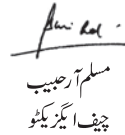 مسلم آر حبیب
چیف ایگزیکٹو